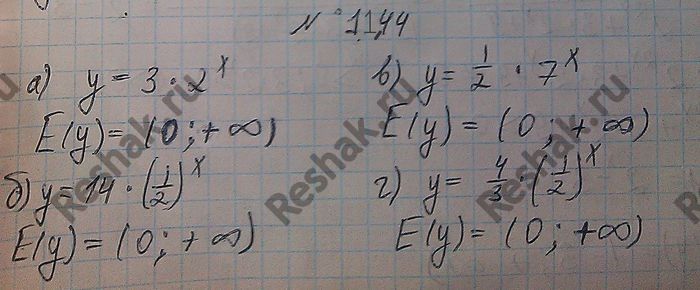 № 11.44
а) y = 3 · 2^x
E(y) = (0; +∞)
б) y = 14 · (1/2)^x
E(y) = (0; +∞)
в) y = 1/2 · 7^x
E(y) = (0; +∞)
г) y = 4/3 · (1/2)^x
E(y) = (0; +∞)
Reshak.ru
Reshak.ru